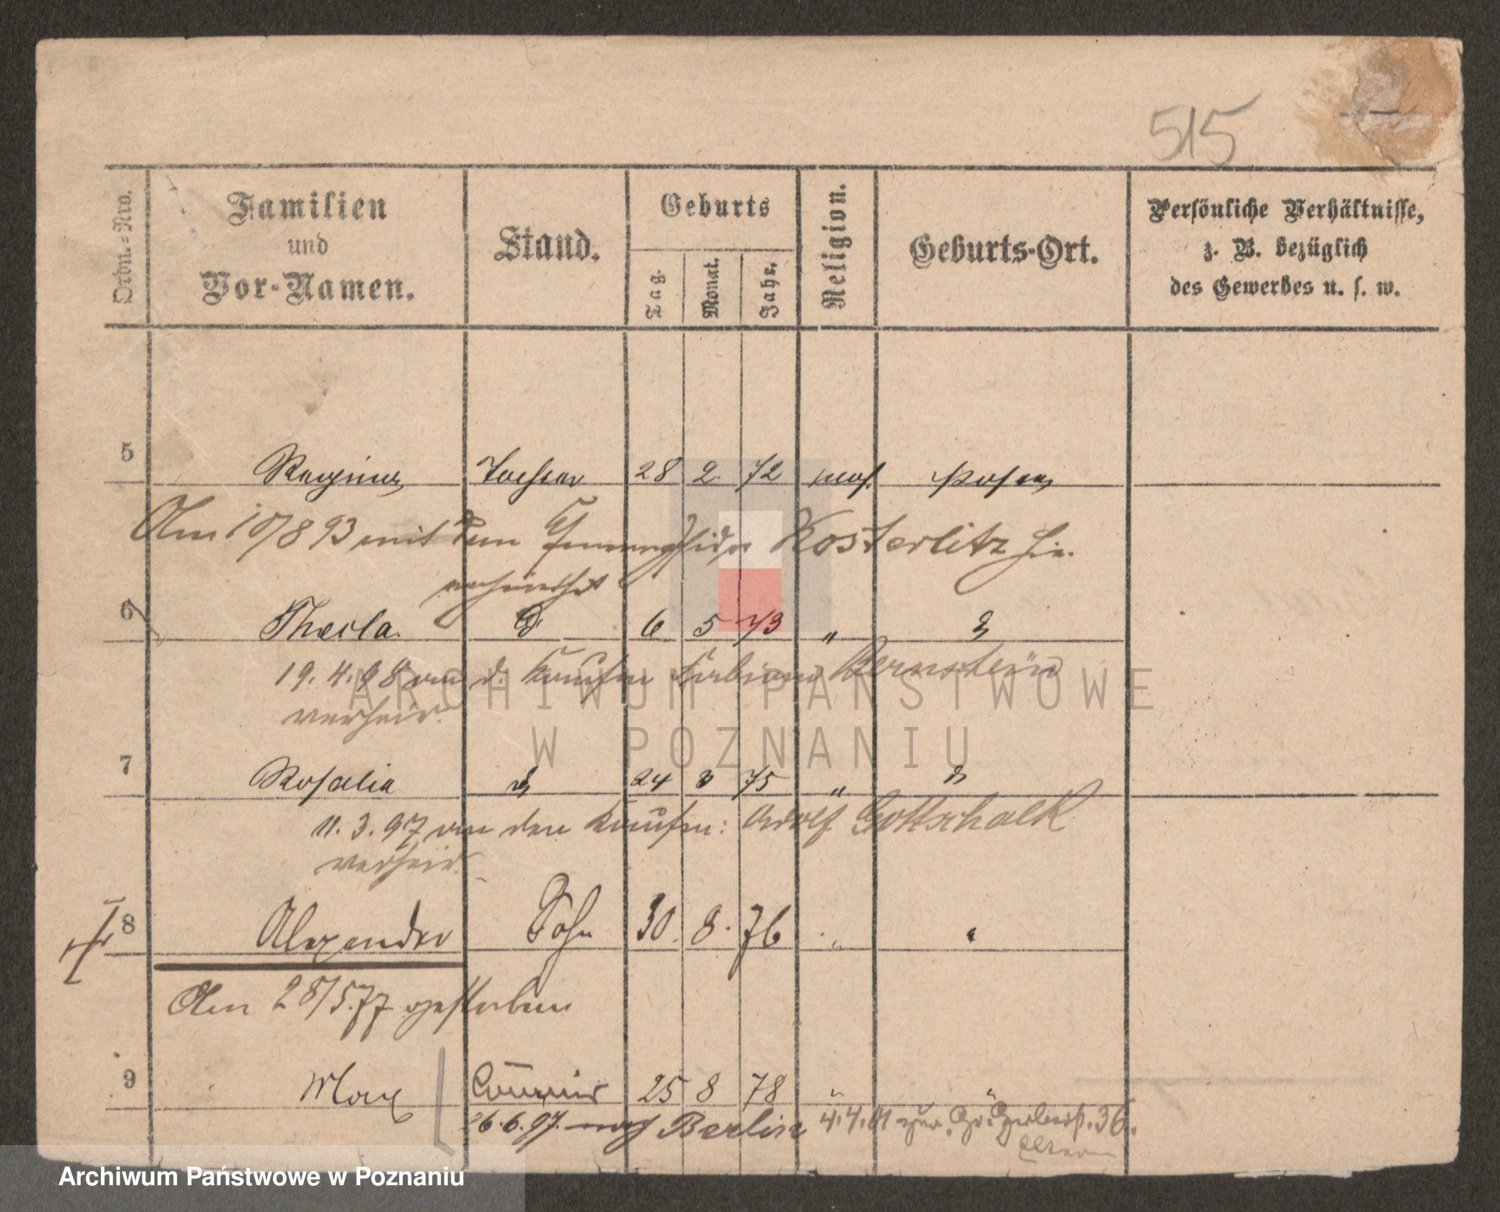 515
Ordn.-Nro. Familien und Vor-Namen. Stand. Geburts Tag. Monat. Jahr. Religion. Geburts-Ort. Persönliche Verhältnisse, z. B. bezüglich des Gewerbes u. s. w.
5 Regina Tochter 28 2. 72 mos. Posen
Am 10/8 93 mit dem Kosterlitz hie.
verheirathet
6 Thecla. d 6 5 73 "
19. 4. 98 an d. Kaufm Bernstein
verheir.
ARCHIWUM PAŃSTWOWE
W POZNANIU
7 Rosalia 24 8 75 "
11. 3. 97 an den Kaufm: Adolf Gottschalk
verheir.
8 Alexander Sohn 30. 8. 76 "
Am 28/5.77 gestorben
9 Max 25 8 78 " "
26.6.97. nach Berlin 4.4.01 zur. 36.
Eltern
Archiwum Państwowe w Poznaniu